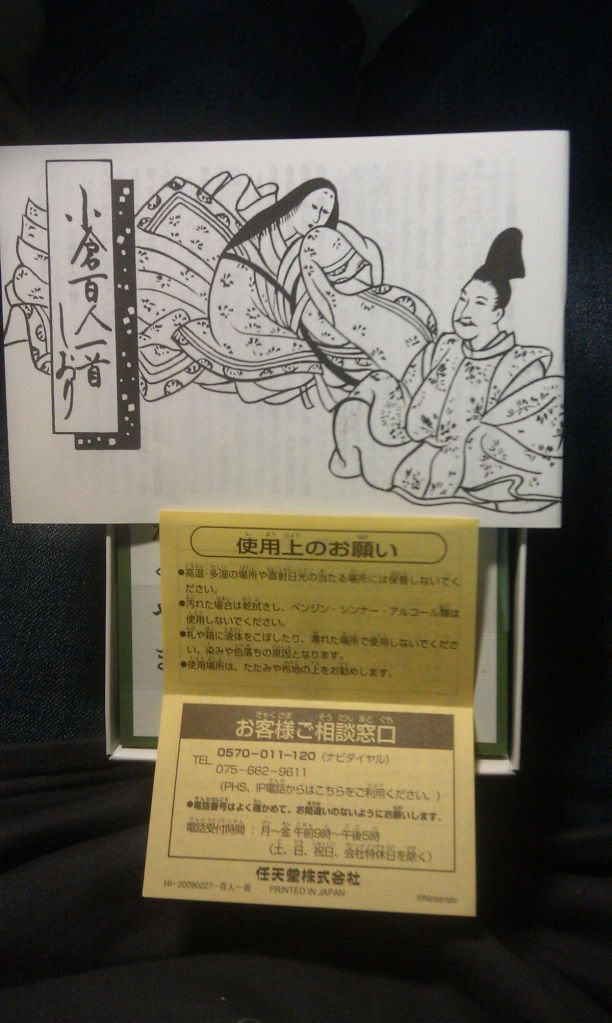 小倉百人一首
しおり
使用上のお願い
●高温・多湿の場所や直射日光の当たる場所には保管しないでく
ださい。
●汚れた場合は乾拭きし、ベンジン・シンナー・アルコール類は
使用しないでください。
●札や箱に液体をこぼしたり、濡れた場所で使用しないでくださ
い。染みや色落ちの原因となります。
●使用場所は、たたみや布地の上をお勧めします。
お客様ご相談窓口
TEL 0570-011-120（ナビダイヤル）
075-662-9611
（PHS、IP電話からはこちらをご利用ください。）
●電話番号はよく確かめて、お間違いのないようにお願いします。
電話受付時間：月～金 午前9時～午後5時
（土、日、祝日、会社特休日を除く）
任天堂株式会社
HI-20090227-百人一首
PRINTED IN JAPAN
©Nintendo